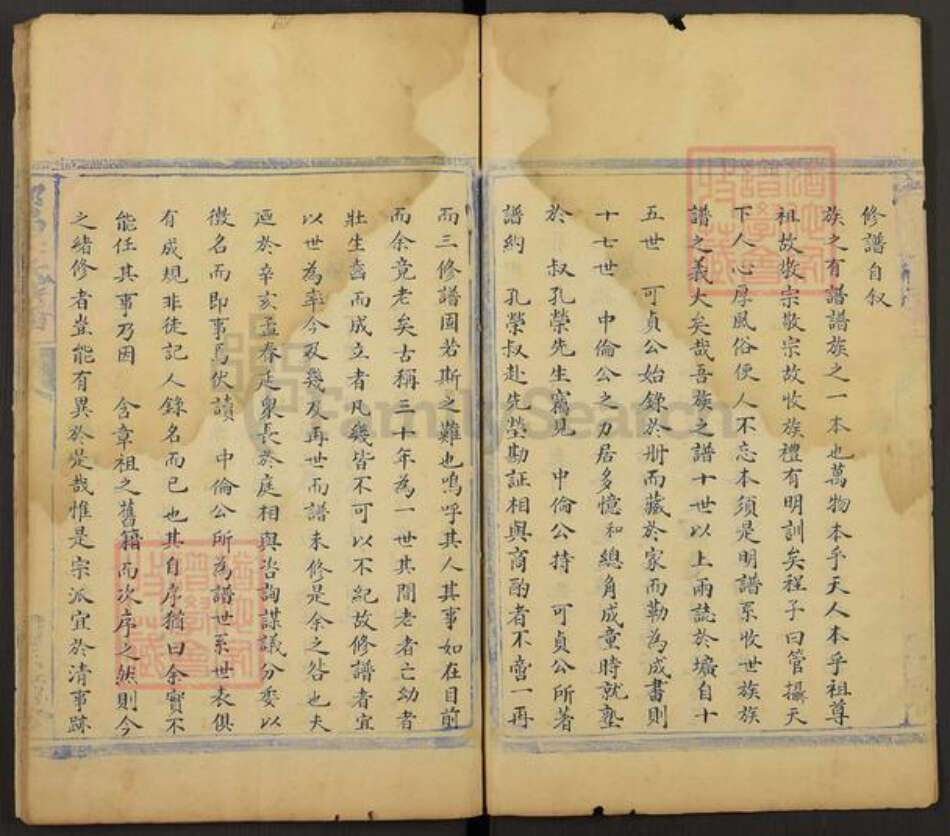 修譜自叙
族之有譜譜族之一本也萬物本乎天人本乎祖尊
祖故敬宗敬宗故收族禮有明訓矣程子曰管攝天
下人心厚風俗使人不忘本須是明譜系收世族族
譜之義大矣哉吾族之譜十世以上兩誌於壙自十
五世 可貞公始錄於冊而藏於家而勒為成書則
十七世 中倫公之力居多憶和總角成童時就塾
於 叔孔榮先生窩見 中倫公持 可貞公所著
譜約 孔榮叔赴先塋勘証相與商酌者不啻一再
而三修譜固若斯之難也嗚呼其人其事如在目前
而余竟老矣古稱三十年為一世其間老者亡幼者
壯生齒而成立者凡幾皆不可以不紀故修譜者宜
以世為率今又幾及再世而譜未修是余之咎也夫
爰於辛亥孟春延衆長於庭相與咨詢謀議分委以
徵名而即事焉伏讀 中倫公所為譜世系世表俱
有成規非徒記人錄名而已也其自序猶曰余實不
能任其事乃因 含章祖之舊籍而次序之然則今
之緒修者豈能有異於是哉惟是宗派宜於清事跡
FamilySearch